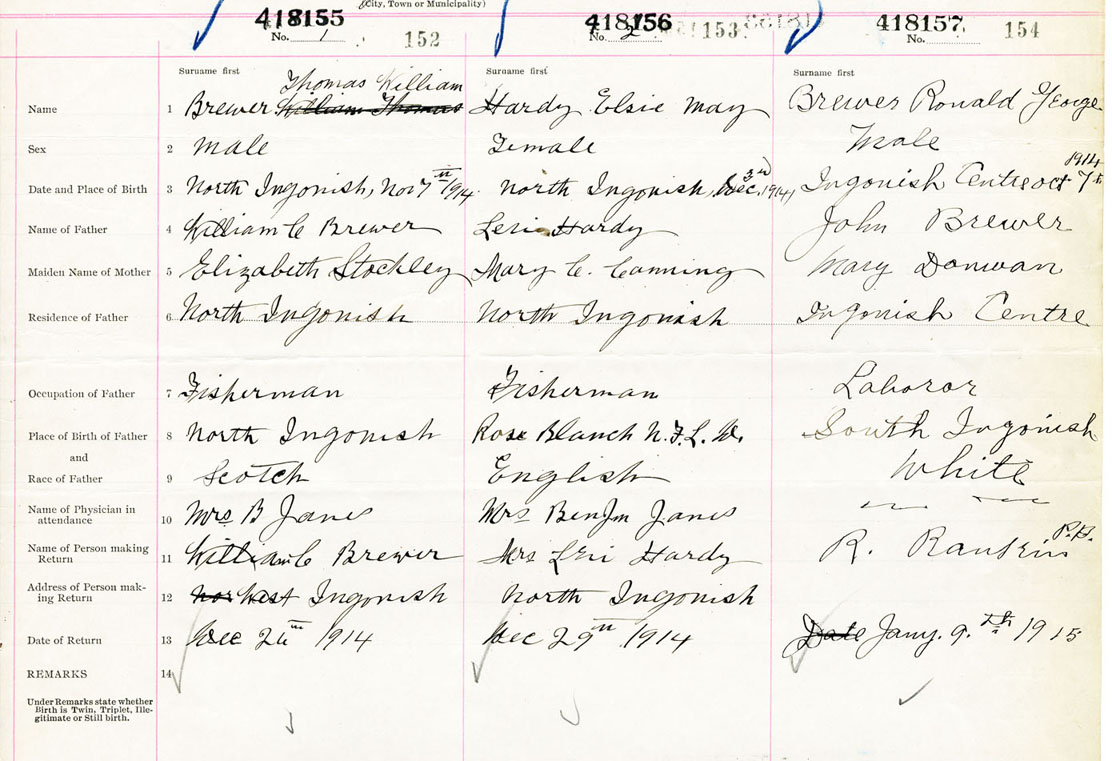 (City, Town or Municipality)
418155 418156 418157
No. 1 152 No. 2 153 No. 154
Surname first Surname first Surname first
Thomas William
Name 1 Brewer William Thomas Hardy Elsie May Brewer Ronald George
Sex 2 Male Female Male
Date and Place of Birth 3 North Ingonish, Nov 7th 1914 North Ingonish, Dec. 3rd 1914 Ingonish Centre Oct 7th 1914
Name of Father 4 William C Brewer Hardy John Brewer
Maiden Name of Mother 5 Elizabeth Stockley Mary C. Canning Mary Donwan
Residence of Father 6 North Ingonish North Ingonish Ingonish Centre
Occupation of Father 7 Fisherman Fisherman Laboror
Place of Birth of Father 8 North Ingonish Rose Blanch N.F.L.D. South Ingonish
and
Race of Father 9 Scotch English White
Name of Physician in
attendance 10 Mrs B Janes Mrs Benjm Janes
Name of Person making
Return 11 William C Brewer Mrs Hardy R. Rankin P.P.
Address of Person mak-
ing Return 12 Nor West Ingonish North Ingonish
Date of Return 13 Dec 26th 1914 Dec 29th 1914 Date Jany. 9.th 1915
REMARKS 14
Under Remarks state whether
Birth is Twin, Triplet, Ille-
gitimate or Still birth.